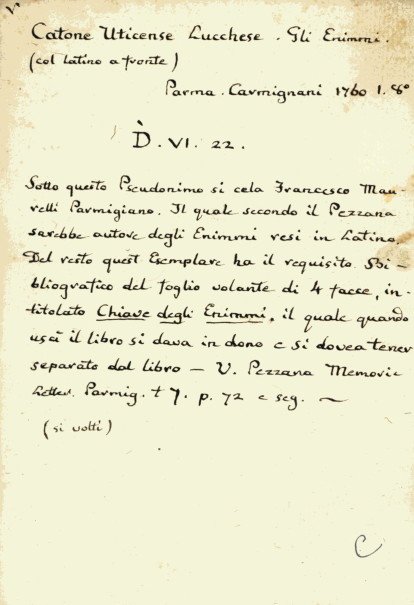 Catone Uticense Lucchese. Gli Enimmi.
(col latino a fronte)
Parma. Carmignani 1760 1. 8º
D. VI. 22.
Sotto questo Pseudonimo si cela Francesco Mau-
relli Parmigiano. Il quale secondo il Pezzana
sarebbe autore degli Enimmi resi in Latino.
Del resto quest Esemplare ha il requisito Bi-
bliografico del foglio volante di 4 facce, in-
titolato Chiave degli Enimmi, il quale quando
uscì il libro si dava in dono e si dovea tener
separato dal libro — V. Pezzana Memorie
Letter. Parmig. t 7. p. 72 e seg. ~
(si volti)
C